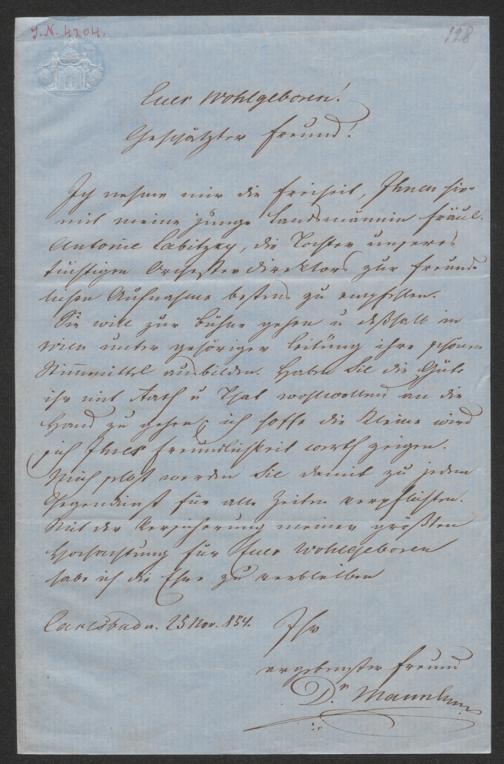 J.N. 4204.
128
Euer Wohlgeboren!
Geschätzter Freund!
Ich nehme mir die Freiheit, Ihnen hier-
mit meine junge Landsmännin Fräul.
Antonie Labitzky, die Tochter unseres
tüchtigen Orchesterdirektors zur freund-
lichen Aufnahme bestens zu empfehlen.
Sie will zur Bühne gehen u deßhalb in
unter gehöriger Leitung ihre schönen
Stimmittel ausbilden. Haben Sie die Güte
ihr mit Rath u That wohlwollend an die
Hand zu gehen, ich hoffe die Kleine wird
sich Ihrer Freundlichkeit werth zeigen.
Mich selbst werden Sie damit zu jedem
Gegendienst für alle Zeiten verpflichten.
Mit der Versicherung meiner größten
Hochachtung für Euer Wohlgeboren
habe ich die Ehre zu verbleiben
Carlsbad 25 Nov. 854.
Ihr
ergebenster Freund
Dr